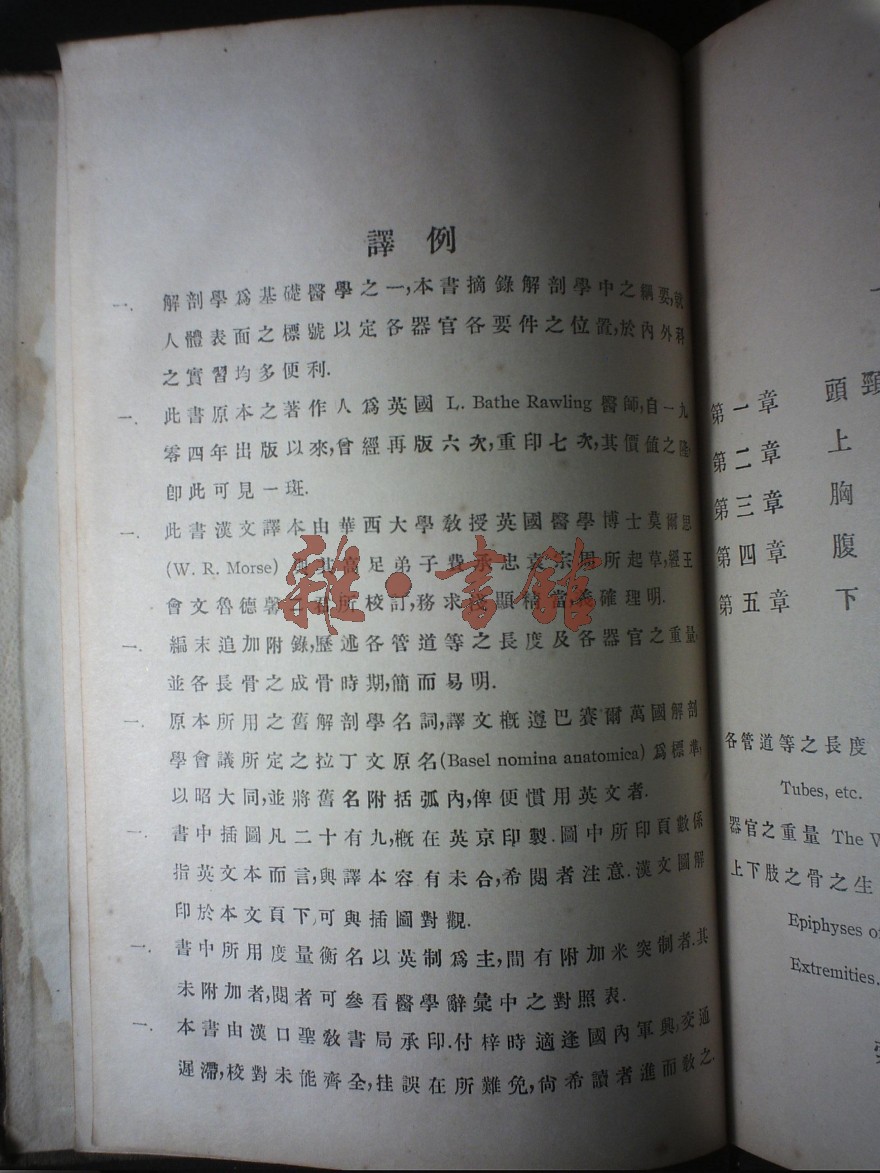 譯例
一. 解剖學爲基礎醫學之一,本書摘錄解剖學中之綱要,就
人體表面之標號以定各器官各要件之位置,於內外科
之實習均多便利.
一. 此書原本之著作人爲英國 L. Bathe Rawling 醫師,自一九
零四年出版以來,曾經再版六次,重印七次,其價値之隆,
卽此可見一斑.
一. 此書漢文譯本由華西大學敎授英國醫學博士莫爾思
(W. R. Morse) 足弟子費承忠袁宗周所起草,經王
會文魯德馨二君所校訂,務求淺顯補當,義確理明.
一. 編末追加附錄,歷述各管道等之長度及各器官之重量,
並各長骨之成骨時期,簡而易明.
一. 原本所用之舊解剖學名詞,譯文槪遵巴賽爾萬國解剖
學會議所定之拉丁文原名(Basel nomina anatomica)爲標準,
以昭大同,並將舊名附括弧內,俾便慣用英文者.
一. 書中插圖凡二十有九,槪在英京印製.圖中所印頁數係
指英文本而言,與譯本容有未合,希閱者注意.漢文圖解
印於本文頁下,可與插圖對觀.
一. 書中所用度量衡名以英制爲主,間有附加米突制者.其
未附加者,閱者可參看醫學辭彙中之對照表.
一. 本書由漢口聖敎書局承印.付梓時適逢國內軍興,交通
遲滯,校對未能齊全,挂誤在所難免,尙希讀者進而敎之.
第一章 頭頸
第二章 上
第三章 胸
第四章 腹
第五章 下
各管道等之長度
Tubes, etc.
器官之重量 The
上下肢之骨之生
Epiphyses
Extremities.
雜·書館